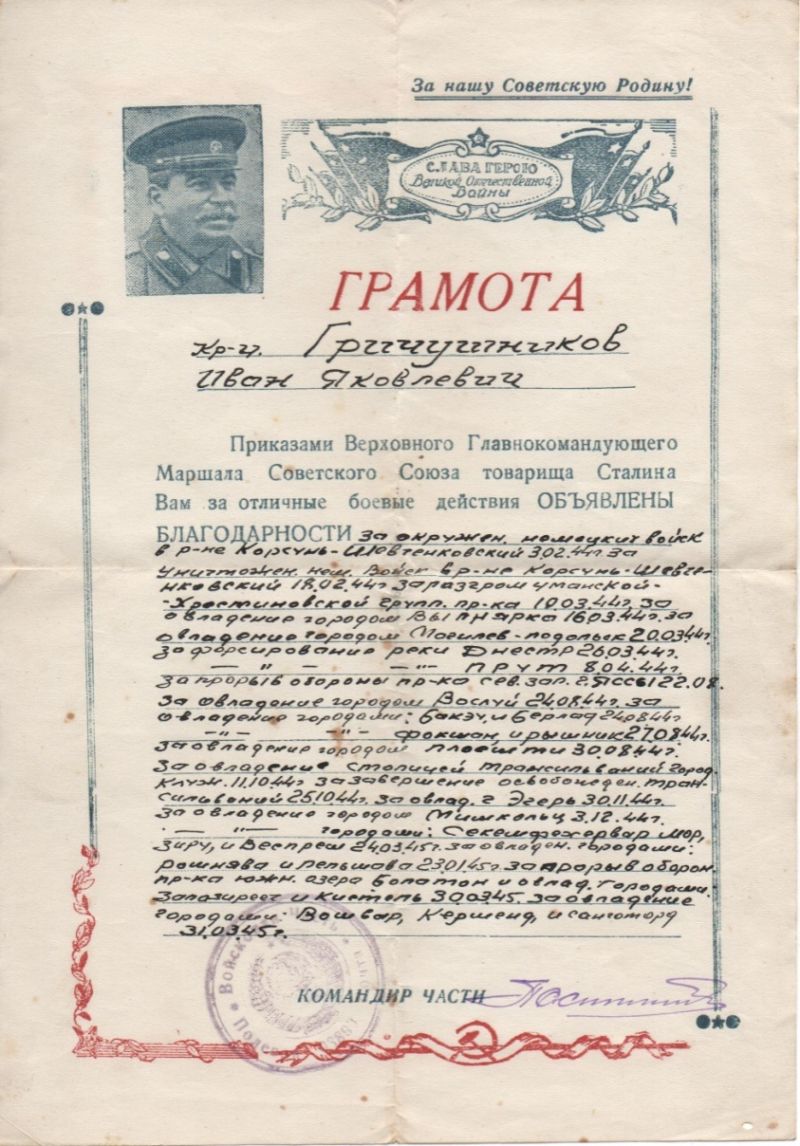 За нашу Советскую Родину!
СЛАВА ГЕРОЮ
Великой Отечественной
Войны
ГРАМОТА
Кр-ц. Гричушников
Иван Яковлевич
Приказами Верховного Главнокомандующего
Маршала Советского Союза товарища Сталина
Вам за отличные боевые действия ОБЪЯВЛЕНЫ
БЛАГОДАРНОСТИ за окружен. немецких войск
в р-не Корсунь-Шевченковский 3.02.44г за
уничтожен. нем. войск в р-не Корсунь-Шевче-
нковский 18.02.44г за разгром уманской-
-Христиновской групп. пр-ка 10.03.44г. за
овладение городом Вапнярка 16.03.44г. за
овладение городом Могилев-подольск 20.03.44г.
за форсирование реки Днестр 26.03.44г.
— " — — " — Прут 8.04.44г.
за прорыв обороны пр-ка сев. зап. г. Яссы 22.08.
за овладение городом Вослуй 24.08.44г. за
овладение городами: Бакэу, и Берлад 24.08.44г
— " — — " — Фокшан и рышник 27.08.44г.
за овладение городом Плоешти 30.08.44г.
за овладение столицей трансильваний город.
Клуж. 11.10.44г за завершение освобожден. тран-
сильваний 25.10.44г. за овлад. г Эгерь 30.11.44г.
за овладение городом Мишкольц 3.12.44г.
— " — городами: Секешфехервар мор,
Зирц, и Веспрем 24.03.45г. за овладен. городами:
Рошнява и Иельшава 23.01.45г. за прорыв оборон.
пр-ка южн. озера Болатон и овлад. городами.
Залаэгерсег и Кистель 30.03.45. за овладение
городами: Вошвар, Керменд, и санготорд
31.03.45г.
КОМАНДИР ЧАСТИ